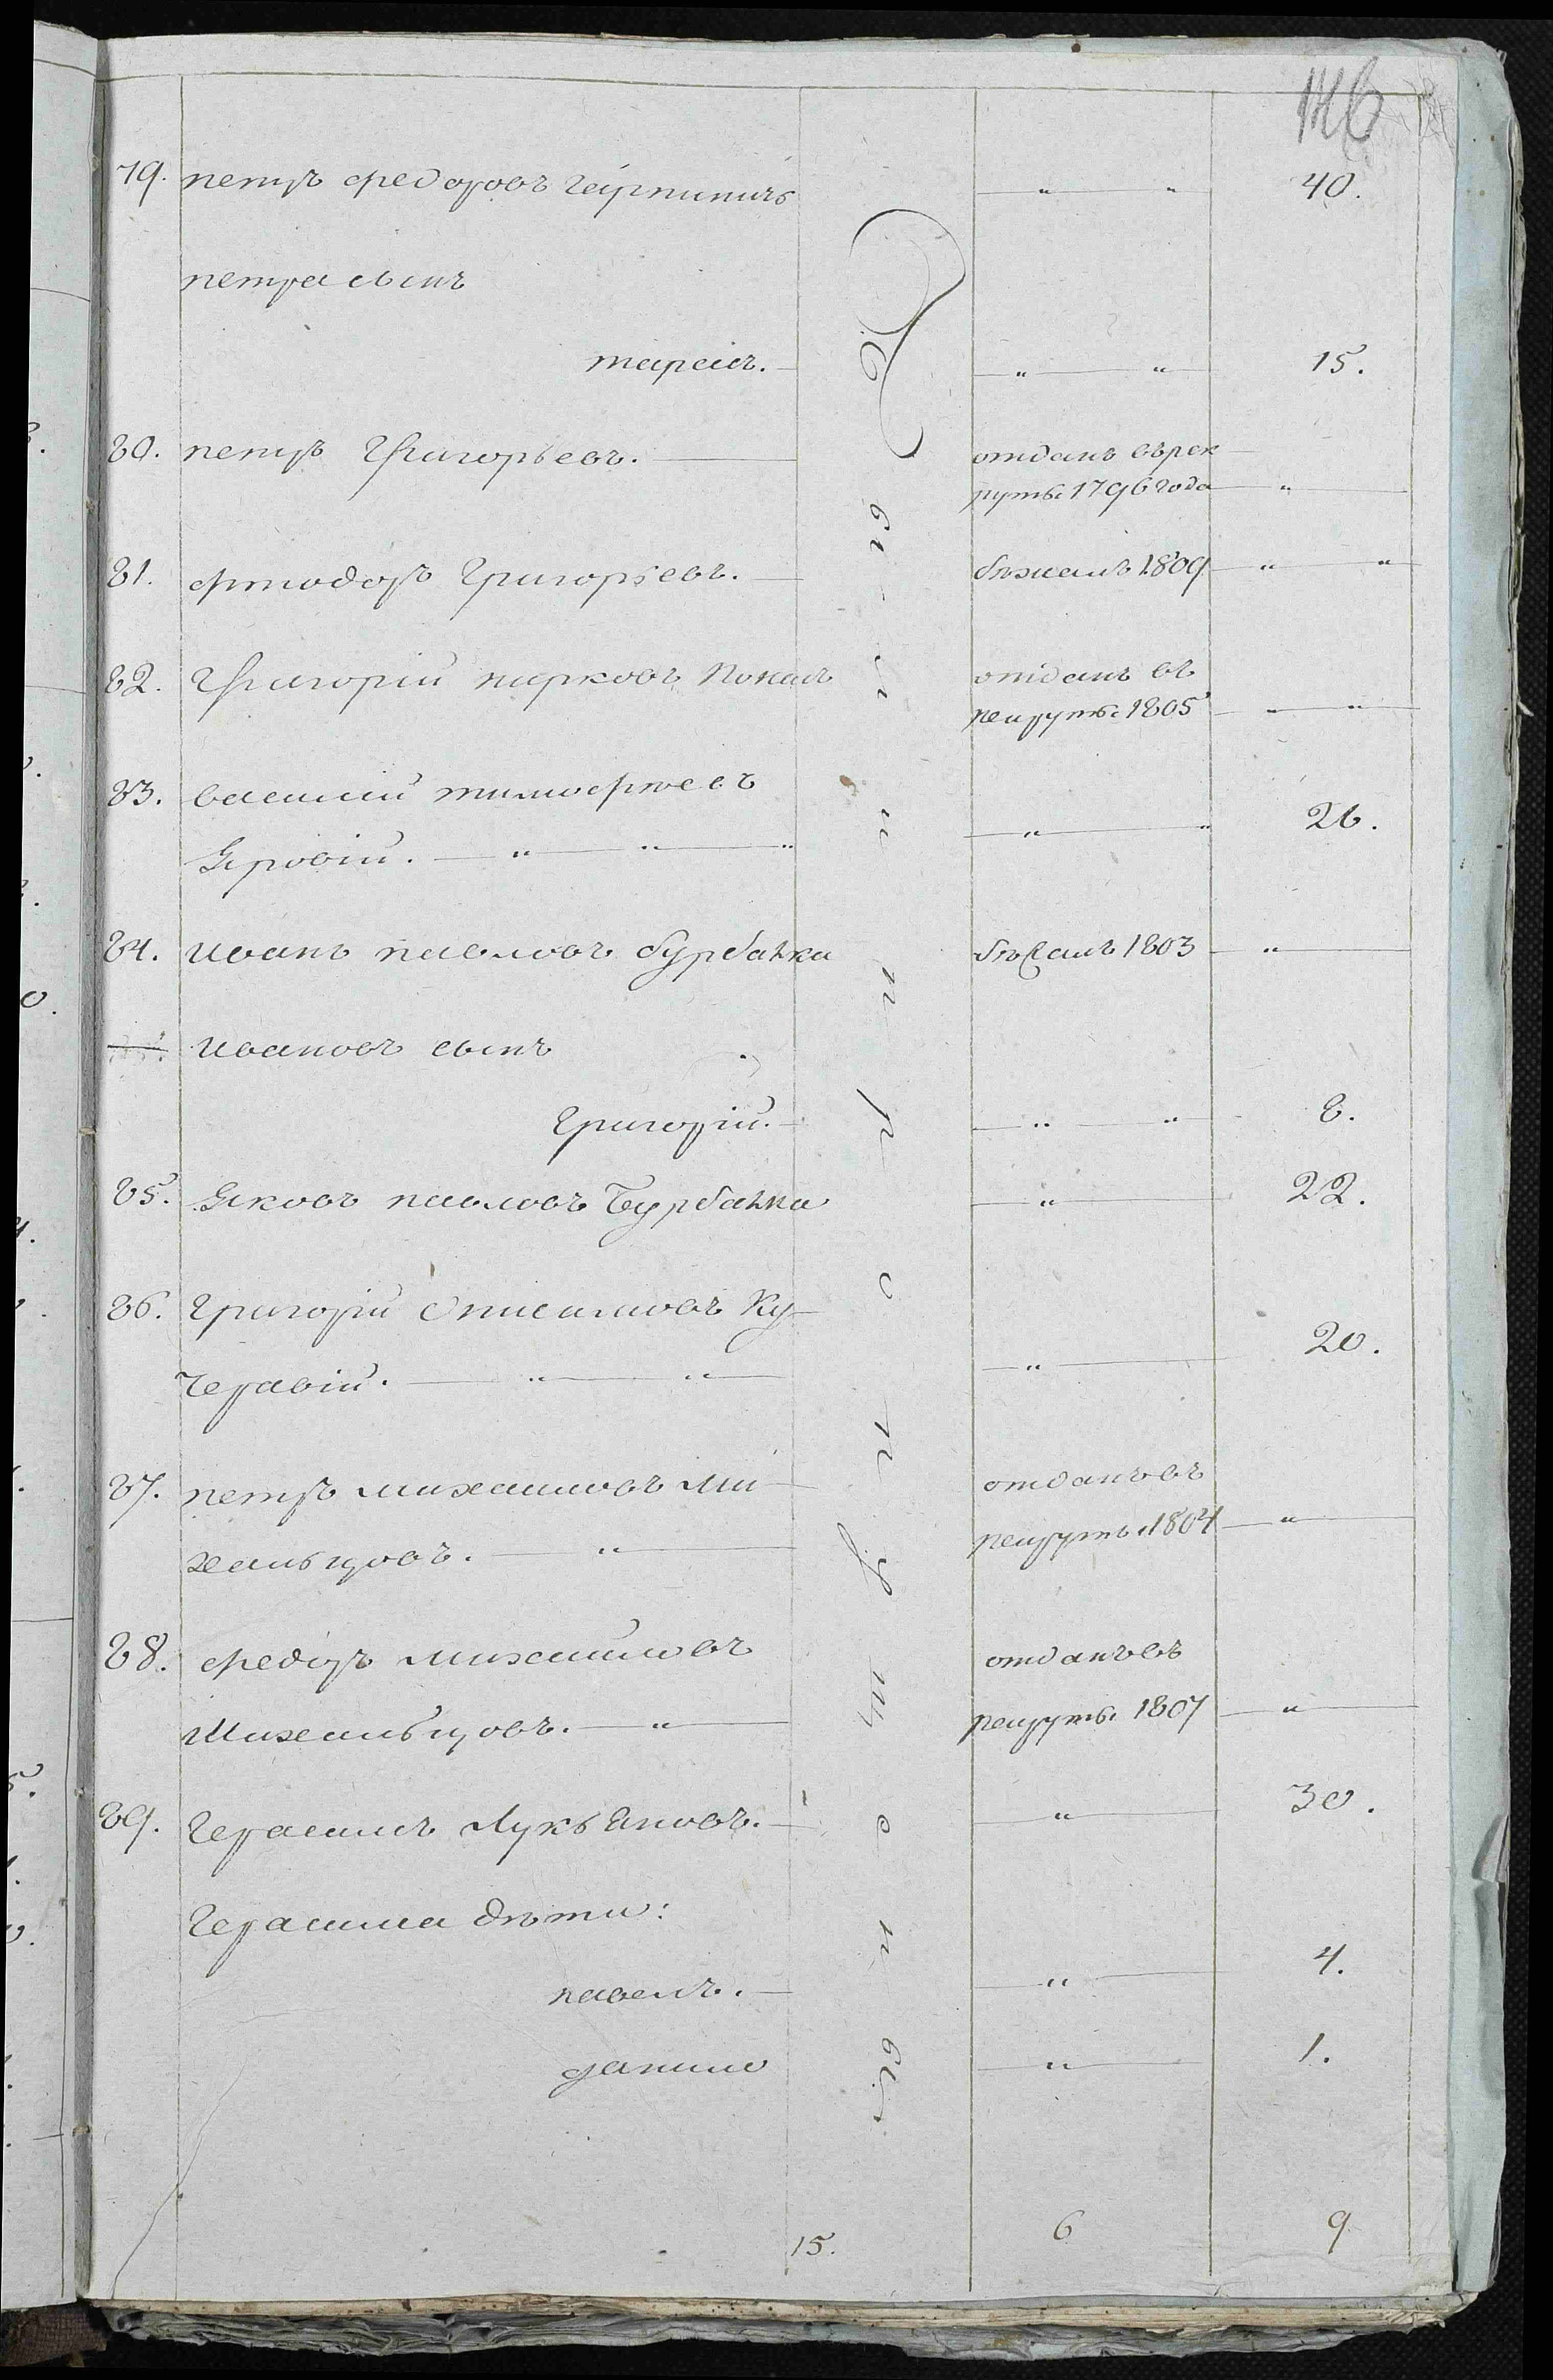 146
79. петръ федоровъ
40.
петра сынъ
тарасъ. 15.
80. петръ Григорьевъ. отданъ въ рек
руты 1796 года
81. Фтодоръ Григорьевъ. бѣжалъ 1809
82. Григорій марковъ отданъ въ
рекруты 1805
83. василій тимофѣевъ
Яровій. 26.
84. иванъ павловъ бурбанка бѣжалъ 1803
ивановъ сынъ
Григорій. 8.
85. Яковъ павловъ Бурбанка 22.
86. Григорій Ку-
черавій. 20.
87. петръ михаиловъ ми-
хальцовъ. отданъ въ
рекруты 1804
88. федоръ михаиловъ
михальцовъ. отданъ въ
рекруты 1807
89. Герасимъ Лукьяновъ. 30.
Герасима дѣти:
павелъ. 4.
данило 1.
15. 6 9